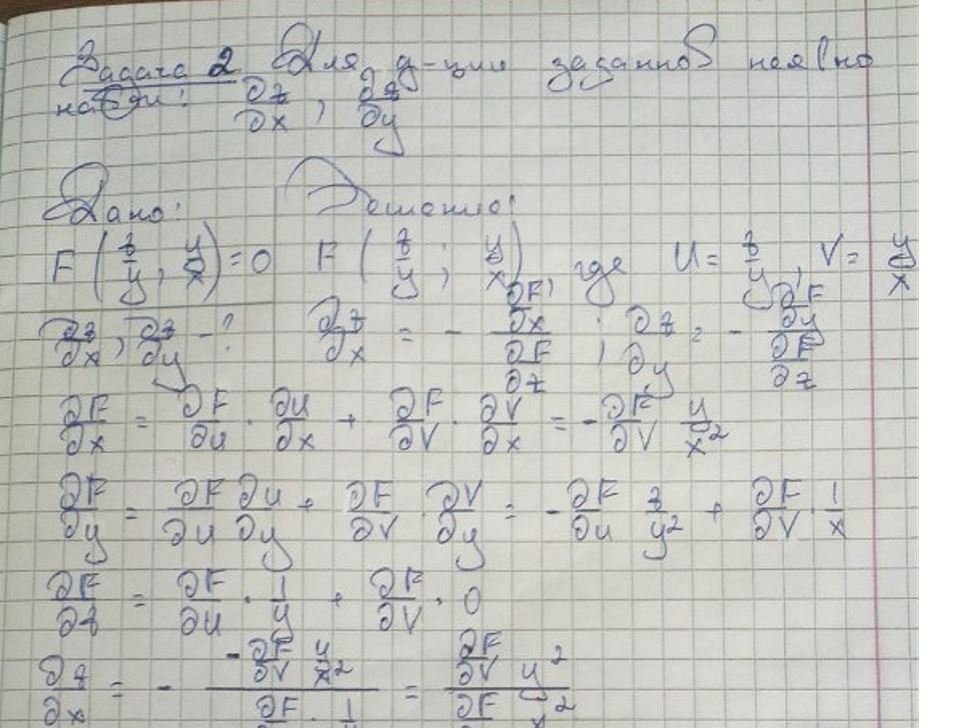 Задача 2 Для ф-ции заданной неявно
найти: ∂z/∂x, ∂z/∂y
Дано: Решение:
F(z/y, y/x)=0 F(z/y; y/x), где U=z/y, V=y/x
∂z/∂x, ∂z/∂y -? ∂z/∂x = - (∂F/∂x)/(∂F/∂z); ∂z/∂y = - (∂F/∂y)/(∂F/∂z)
∂F/∂x = ∂F/∂u · ∂u/∂x + ∂F/∂V · ∂V/∂x = -∂F/∂V y/x²
∂F/∂y = ∂F/∂u ∂u/∂y + ∂F/∂V · ∂V/∂y = -∂F/∂u z/y² + ∂F/∂V · 1/x
∂F/∂z = ∂F/∂u · 1/y + ∂F/∂V · 0
∂z/∂x = - (-∂F/∂V y/x²)/(∂F · 1) = (∂F/∂V y²)/(∂F x²)